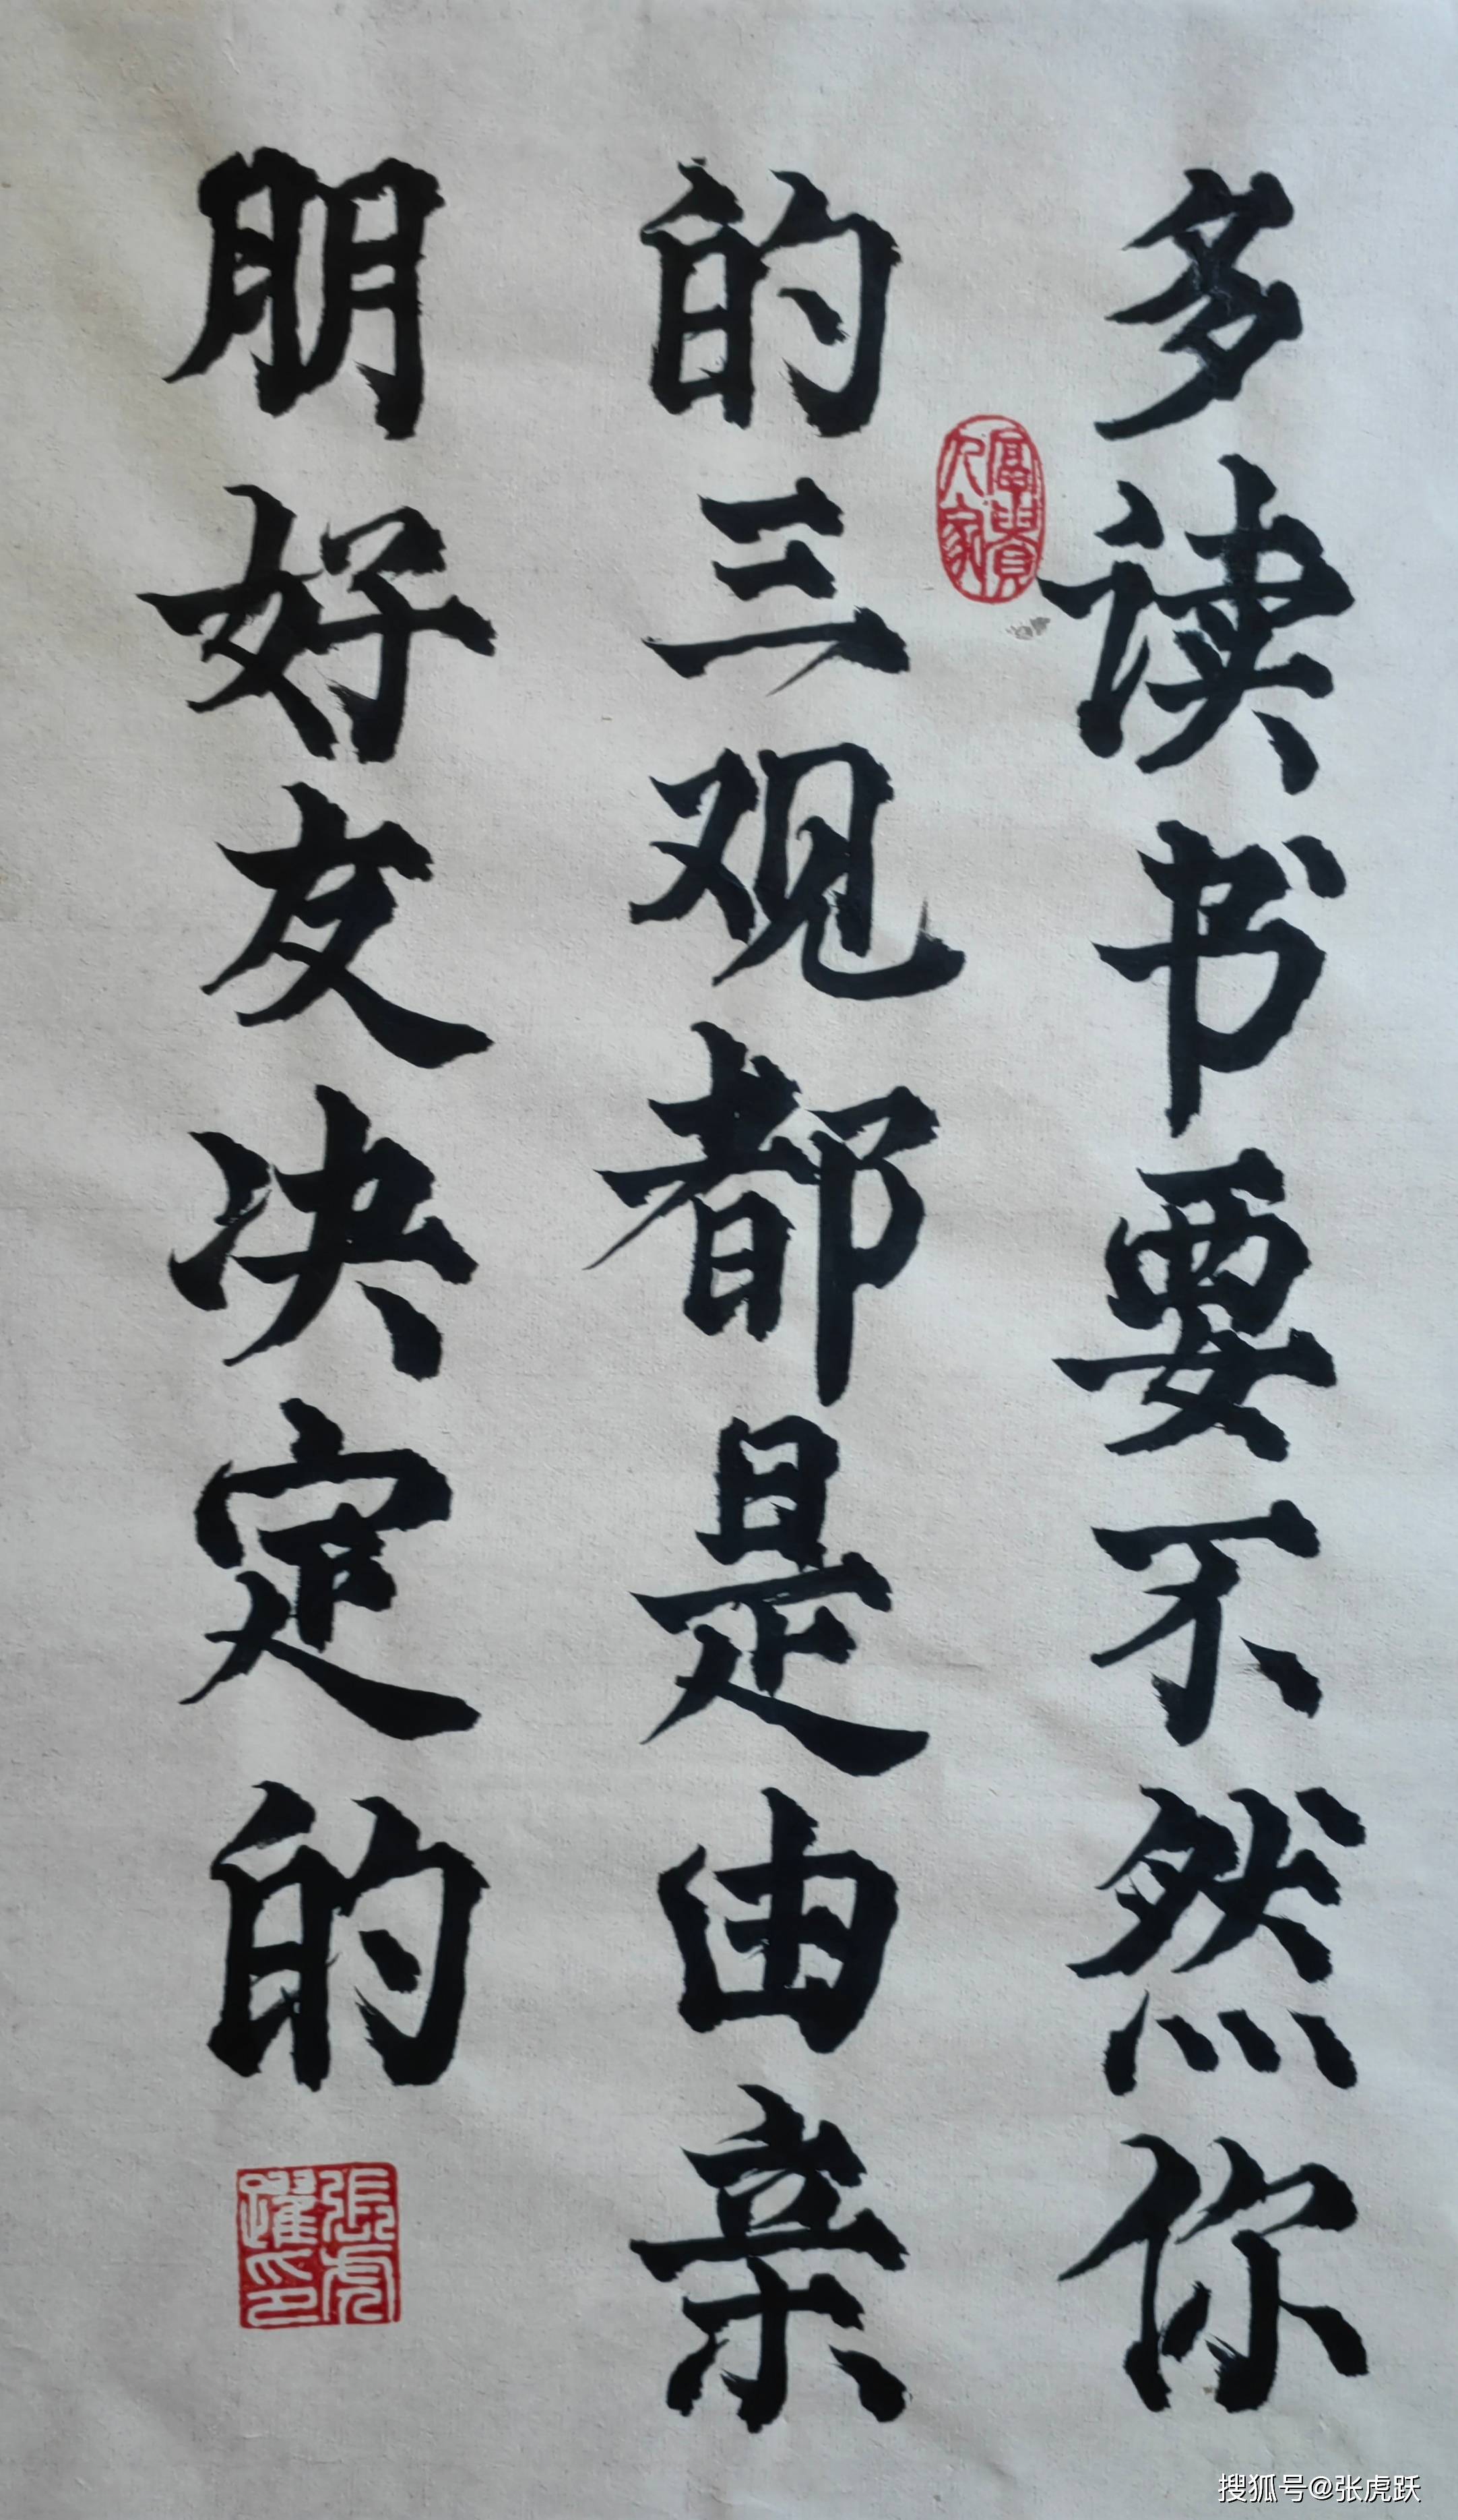 多读书要不然你
的三观都是由亲
朋好友决定的
富贵人家
張虎躍印
搜狐号@张虎跃